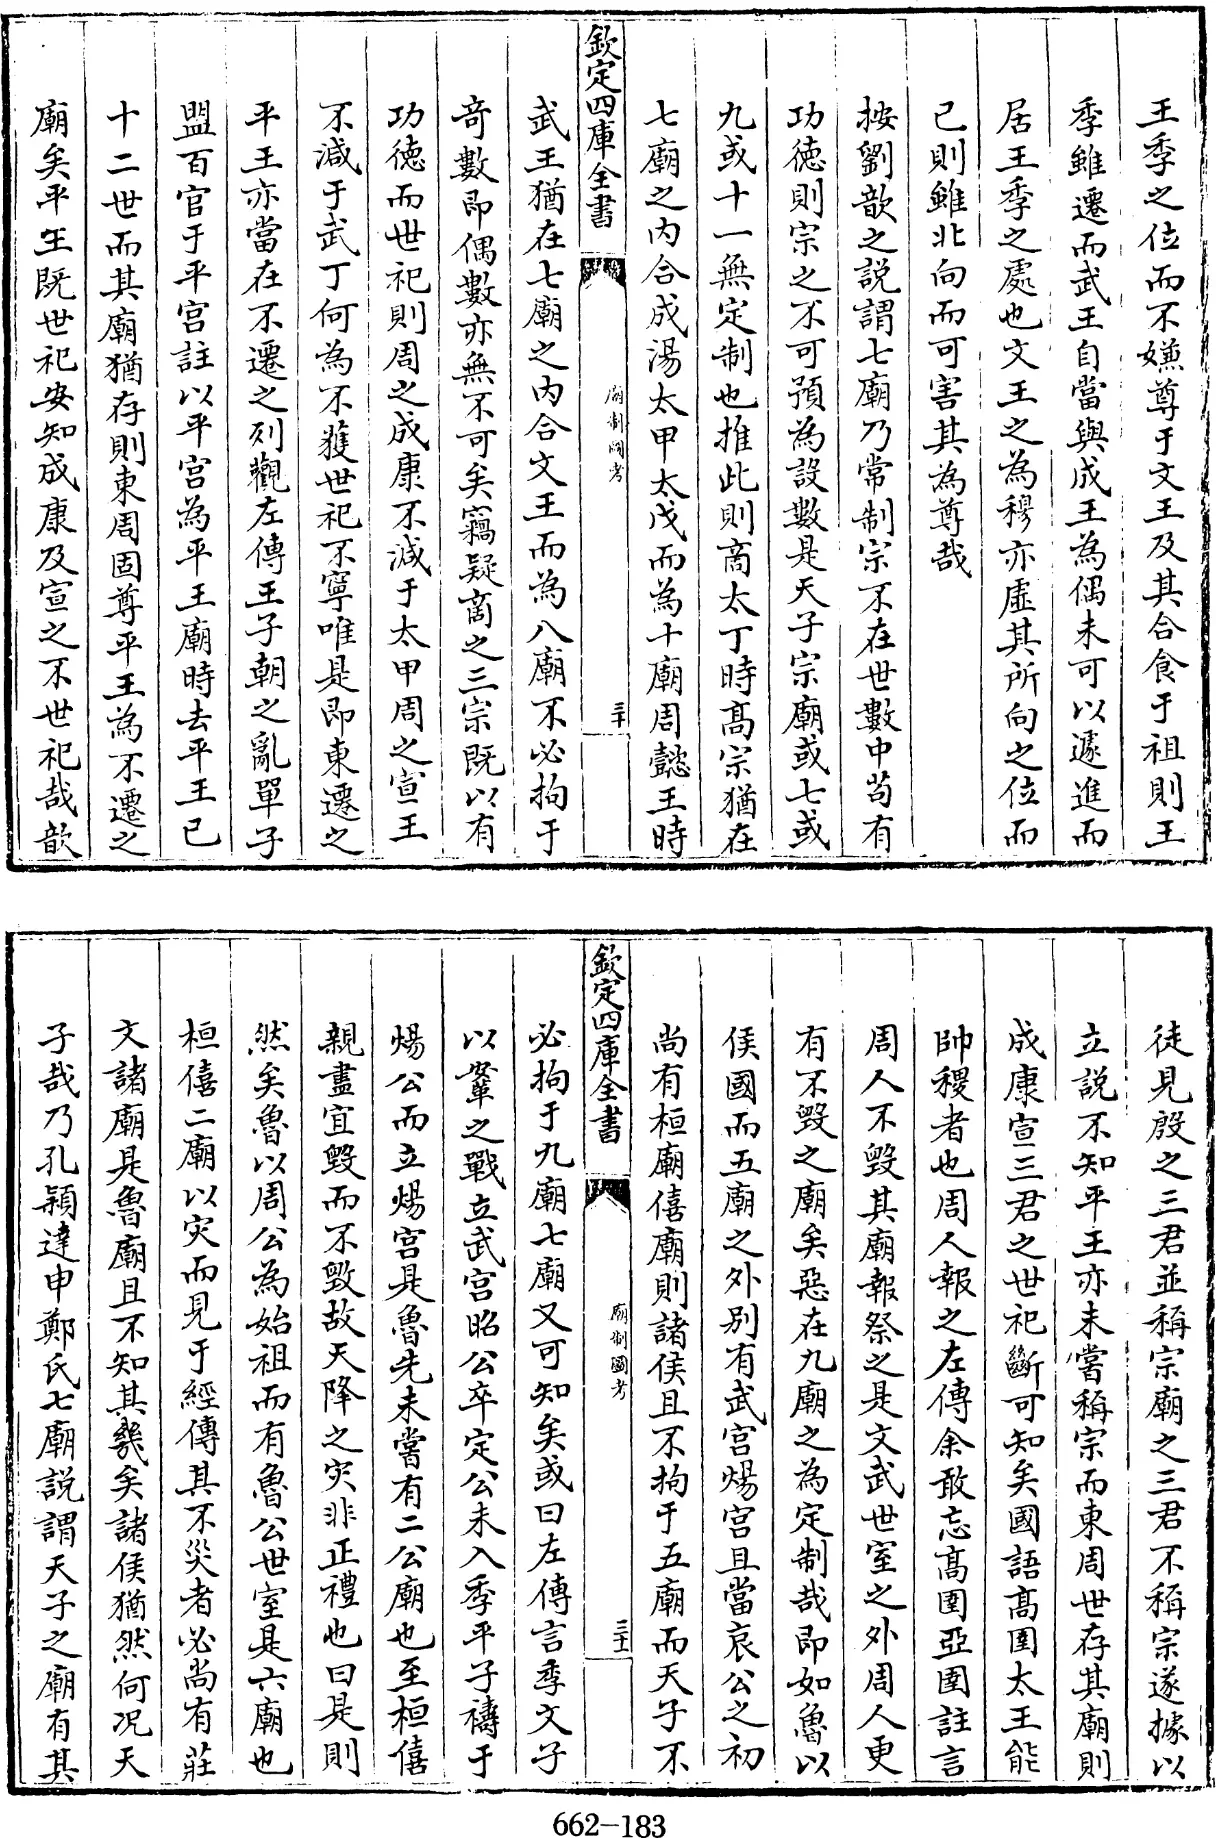 王季之位而不嫌尊于文王及其合食于祖則王
季雖遷而武王自當與成王為偶未可以遽進而
居王季之處也文王之為穆亦虛其所向之位而
已則雖北向而可害其為尊哉
按劉歆之説謂七廟乃常制宗不在世數中苟有
功德則宗之不可預為設數是天子宗廟或七或
九或十一無定制也推此則商太丁時髙宗猶在
七廟之内合成湯太甲太戊而為十廟周懿王時
欽定四庫全書
廟制圖考
三十
武王猶在七廟之内合文王而為八廟不必拘于
竒數即偶數亦無不可矣竊疑商之三宗既以有
功德而世祀則周之成康不減于太甲周之宣王
不減于武丁何為不獲世祀不寧唯是即東遷之
平王亦當在不遷之列觀左傳王子朝之亂單子
盟百官于平宫註以平宫為平王廟時去平王已
十二世而其廟猶存則東周固尊平王為不遷之
廟矣平王既世祀安知成康及宣之不世祀哉歆
徒見殷之三君並稱宗廟之三君不稱宗遂據以
立説不知平王亦未嘗稱宗而東周世存其廟則
成康宣三君之世祀斷可知矣國語髙圉太王能
帥稷者也周人報之左傳余敢忘髙圉亞圉註言
周人不毁其廟報祭之是文武世室之外周人更
有不毁之廟矣惡在九廟之為定制哉即如魯以
侯國而五廟之外别有武宫煬宫且當哀公之初
尚有桓廟僖廟則諸侯且不拘于五廟而天子不
欽定四庫全書
廟制圖考
三十一
必拘于九廟七廟又可知矣或曰左傳言季文子
以鞌之戰立武宫昭公卒定公未入季平子禱于
煬公而立煬宫是魯先未嘗有二公廟也至桓僖
親盡宜毁而不毁故天降之灾非正禮也曰是則
然矣魯以周公為始祖而有魯公世室是六廟也
桓僖二廟以灾而見于經傳其不災者必尚有莊
文諸廟是魯廟且不知其幾矣諸侯猶然何况天
子哉乃孔頴達申鄭氏七廟説謂天子之廟有其
662-183